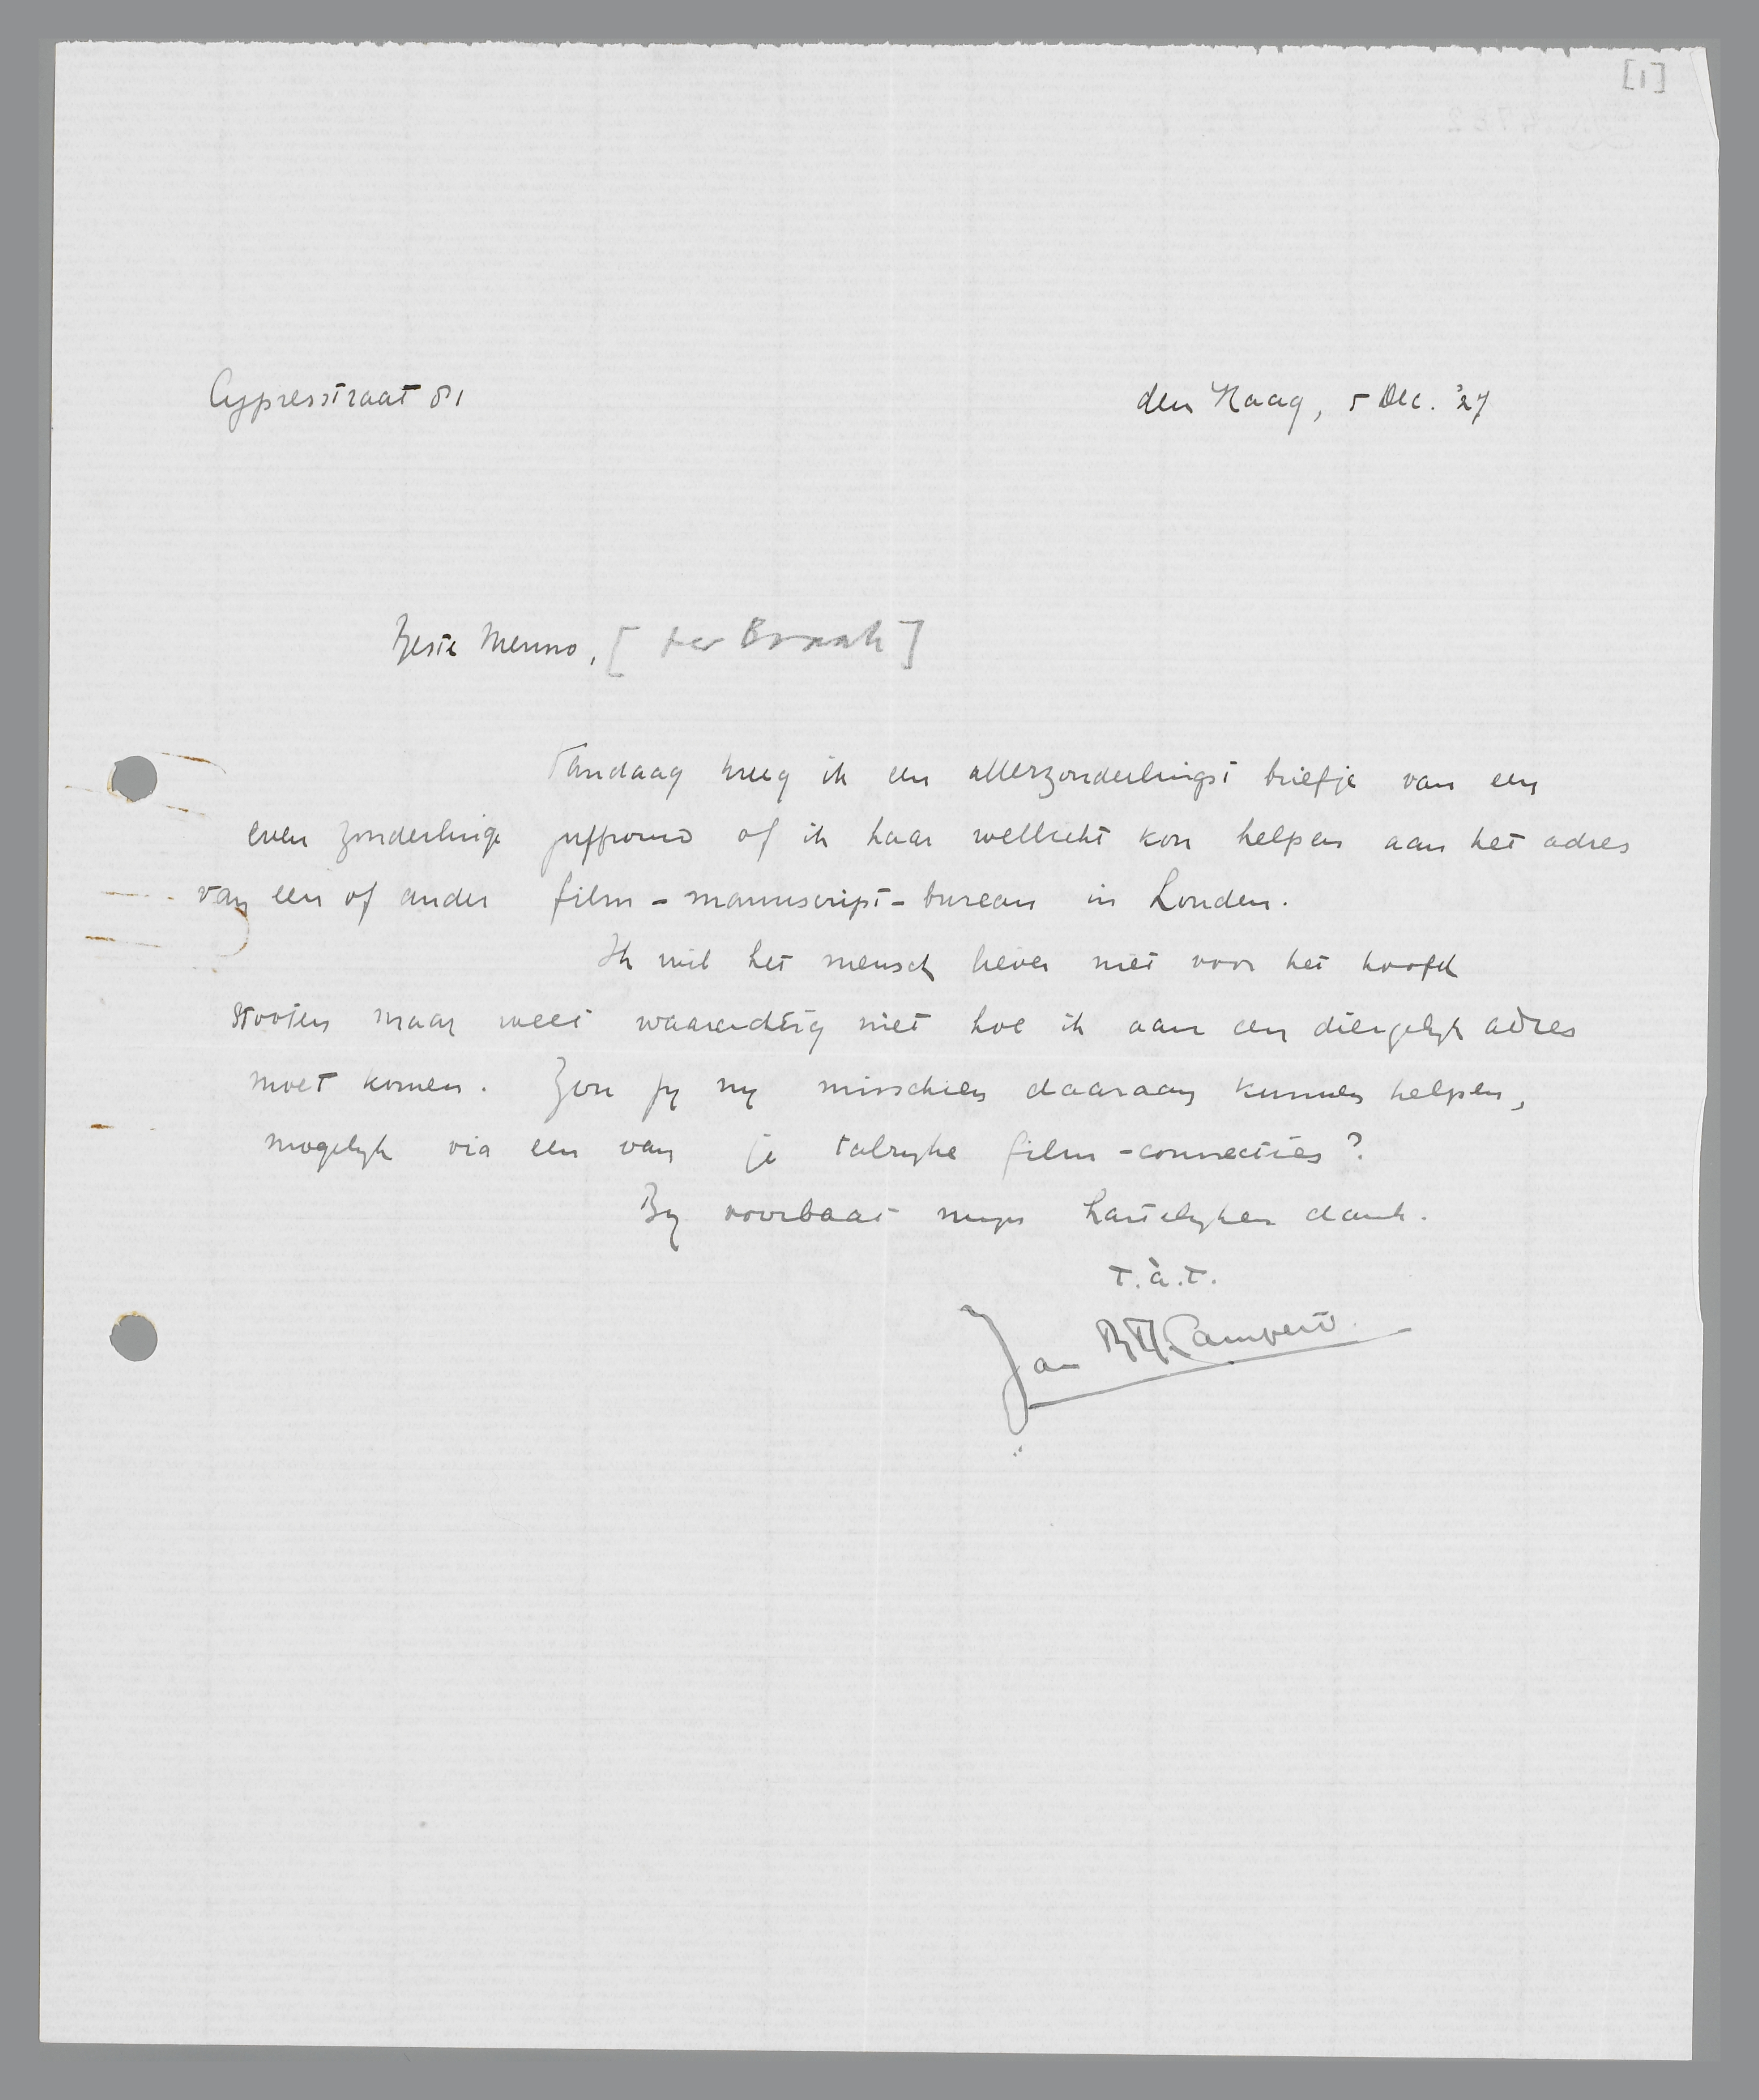 [1]
Cypresstraat 81
den Haag, 5 Dec. '27
Beste Menno, [ter Braak]
Vandaag kreeg ik een allerzonderlingst briefje van een
even zonderlinge juffrouw of ik haar wellicht kon helpen aan het adres
van een of ander film-manuscript-bureau in Londen.
Ik wil het mensch liever niet voor het hoofd
stooten maar weet waarachtig niet hoe ik aan een dergelijk adres
moet komen. Zou jij mij misschien daaraan kunnen helpen,
mogelijk via een van je talrijke film-connecties?
Bij voorbaat mijn hartelijken dank.
t.à.t.
Jan R.Th. Campert.